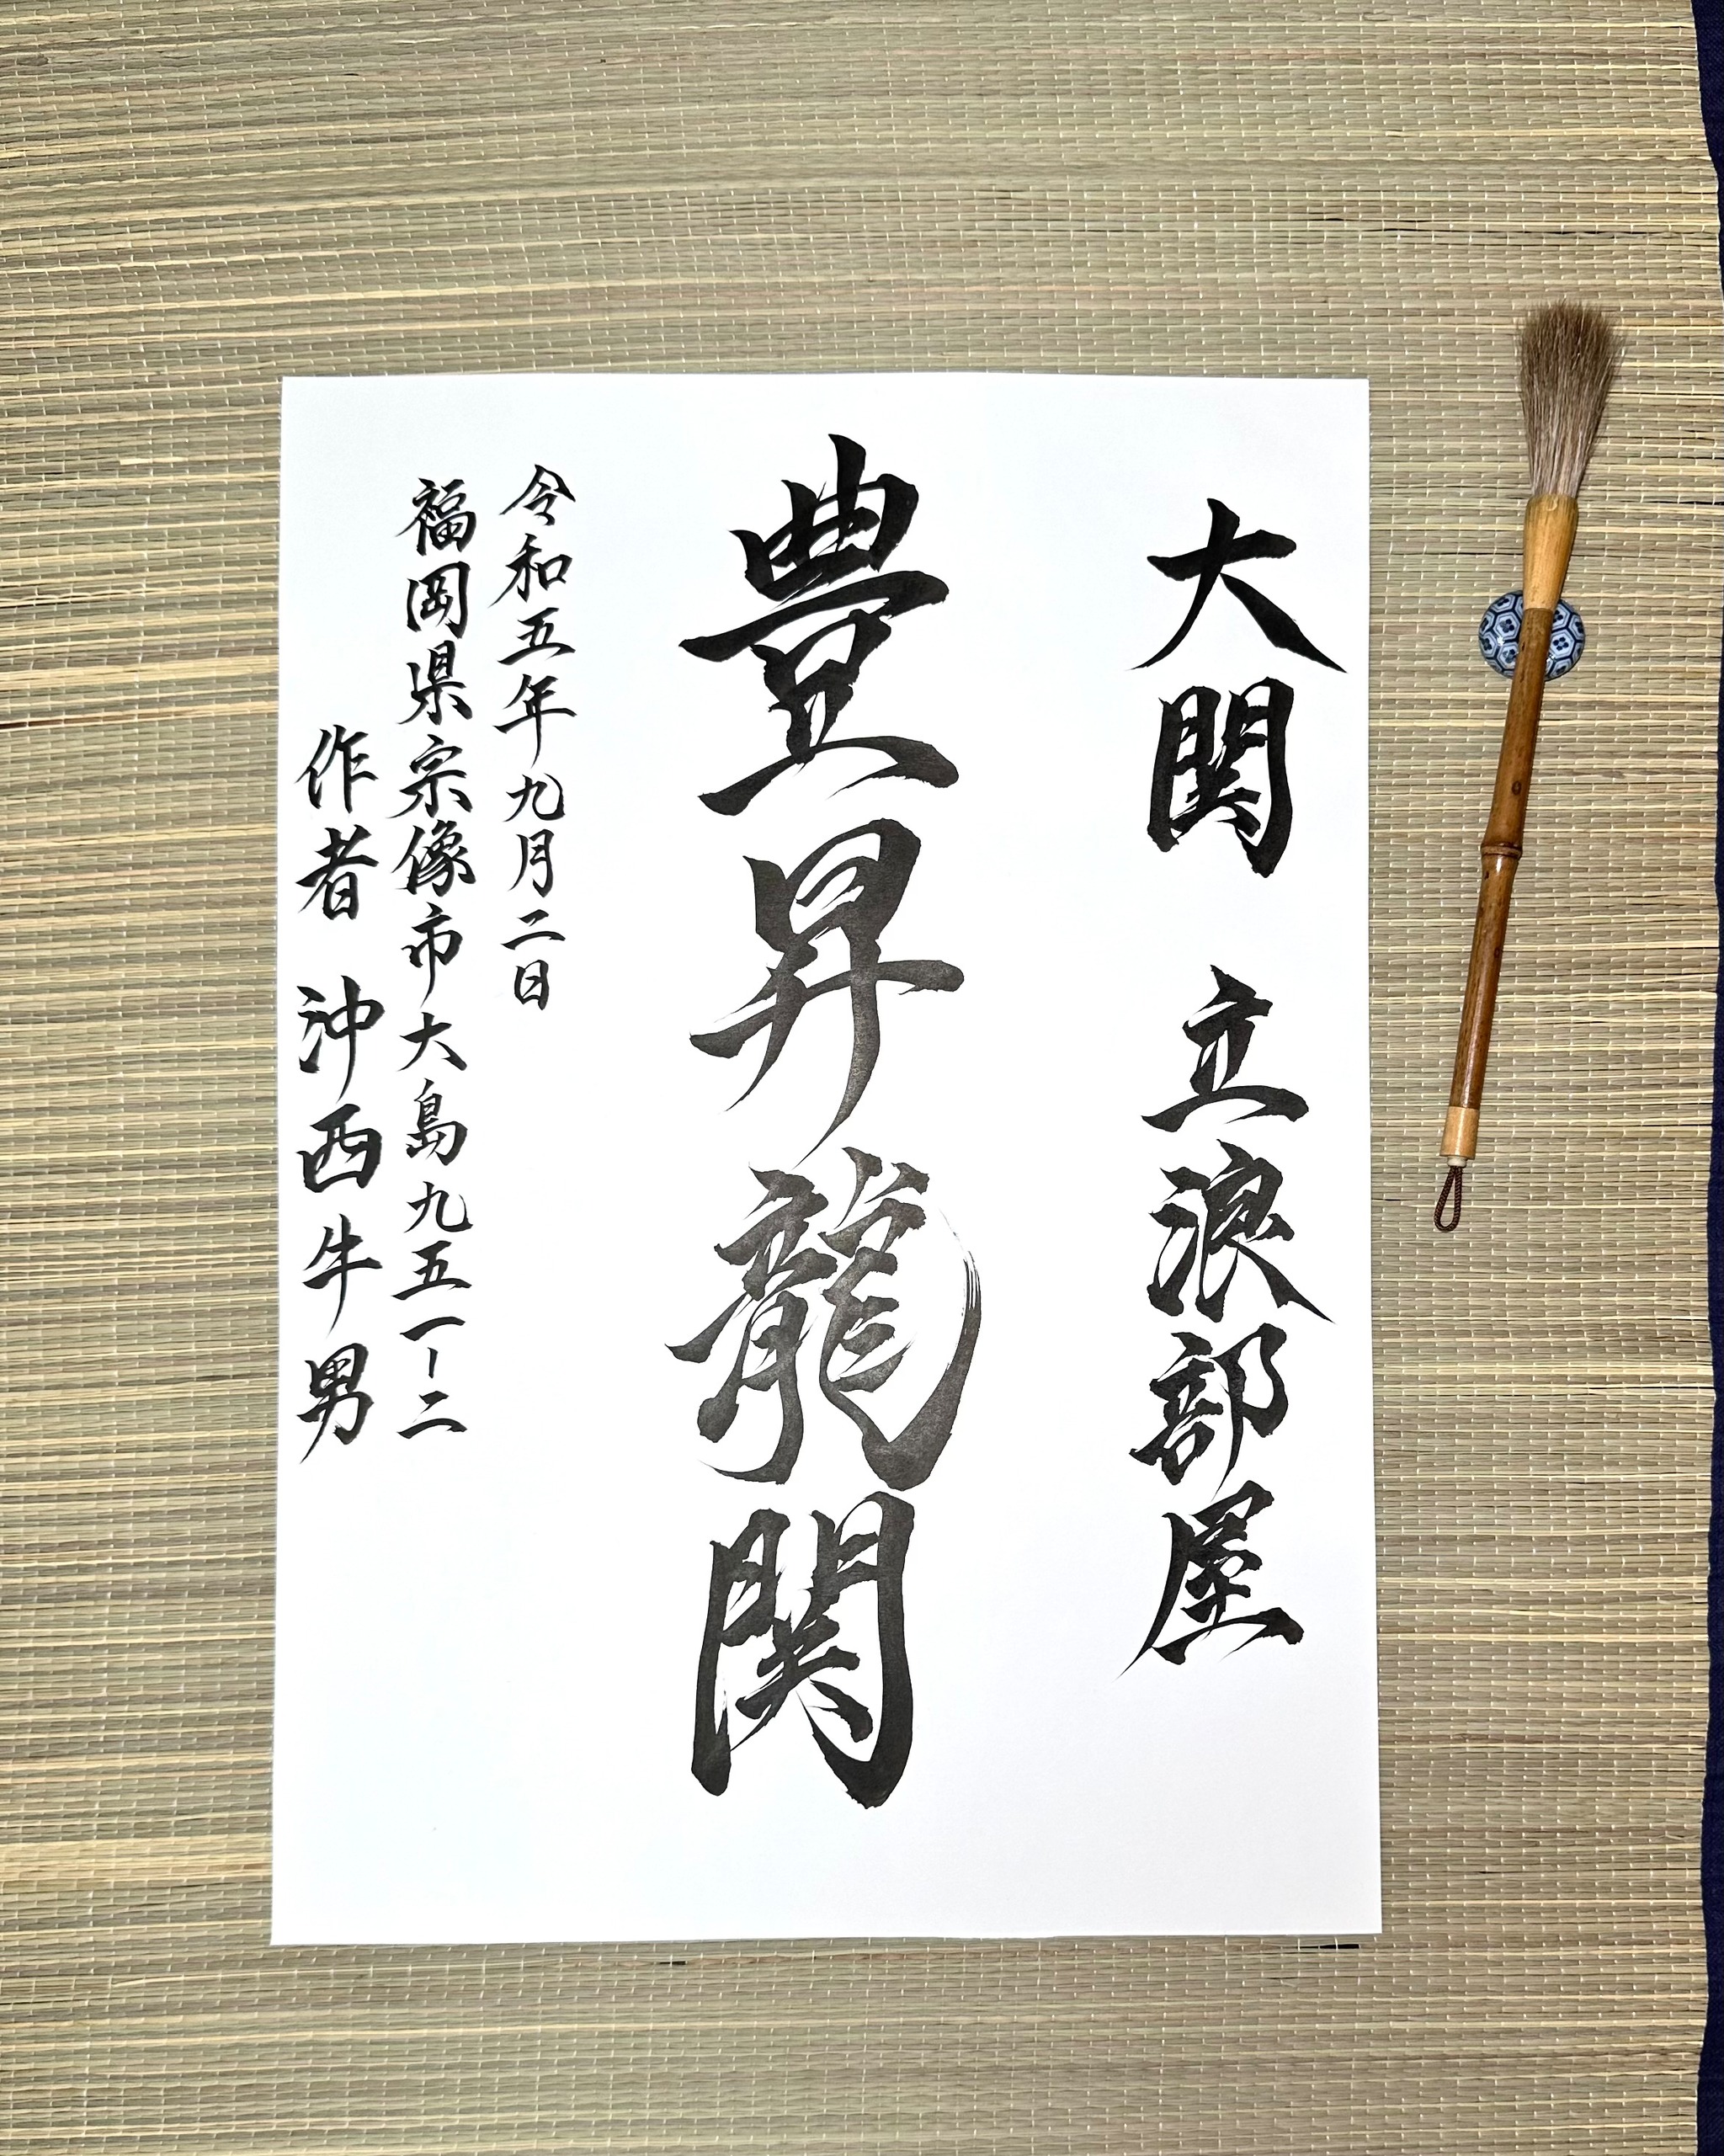 大関 立浪部屋
豊昇龍関
令和五年九月二日
福岡県宗像市大島九五一-二
作者 沖西牛男